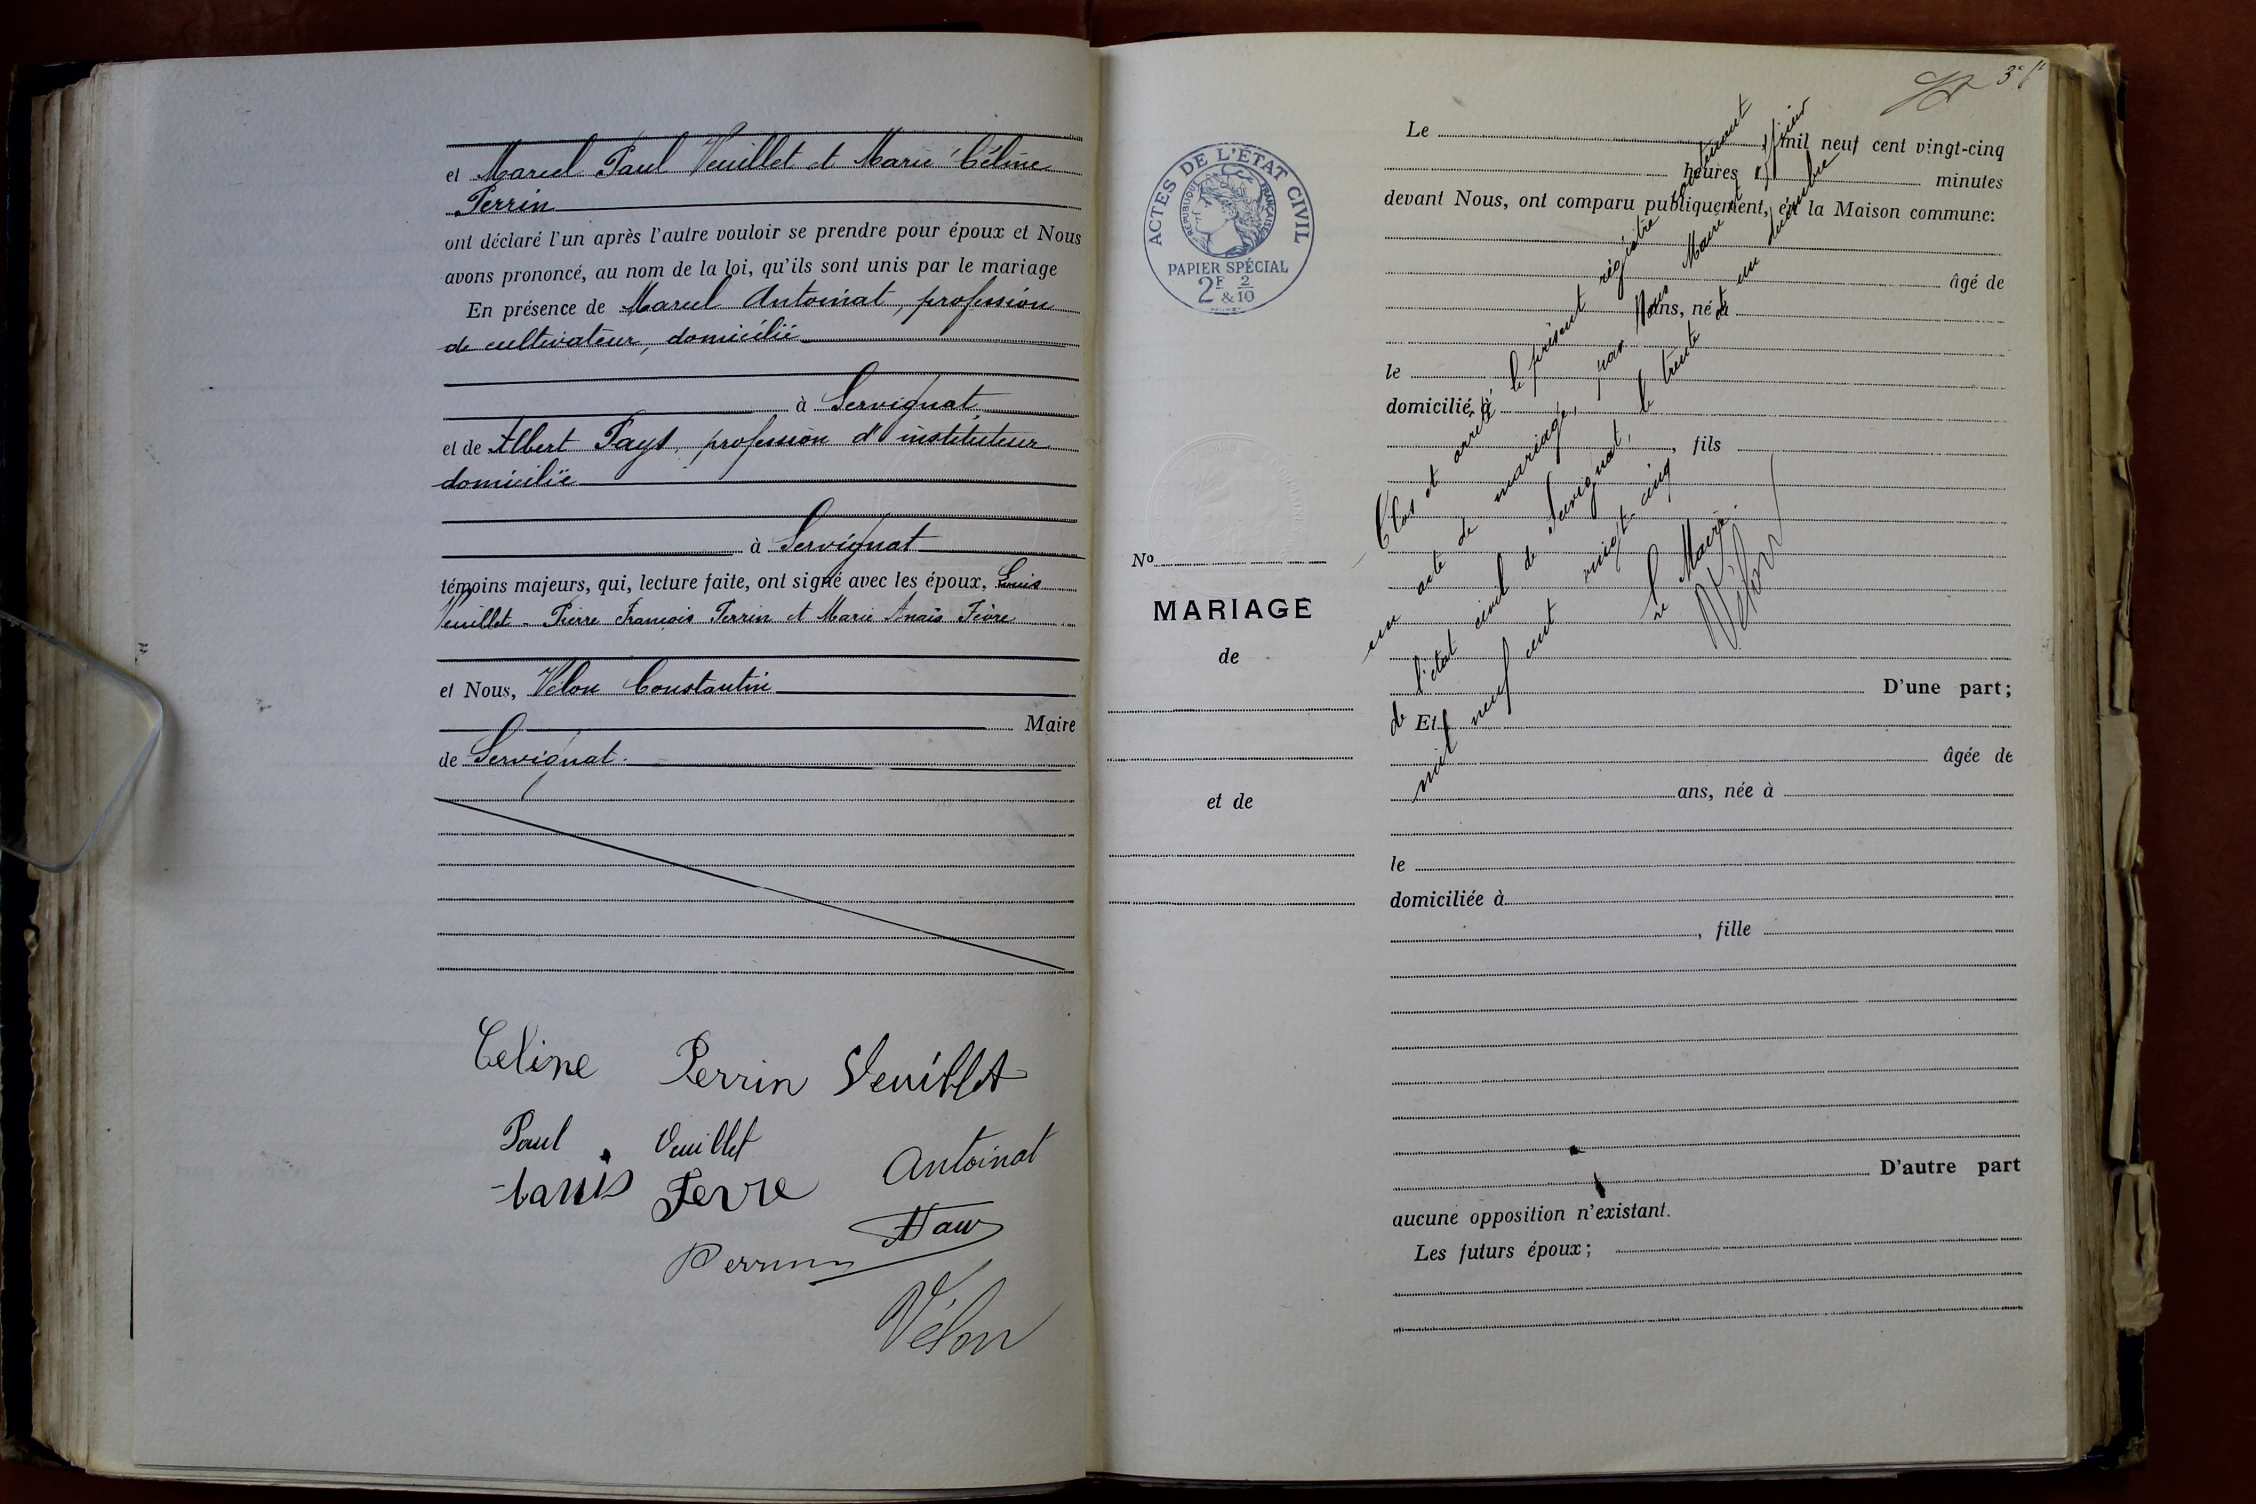 et Marcel Paul Veuillet et Marie Céline
Perrin
ont déclaré l'un après l'autre vouloir se prendre pour époux et Nous
avons prononcé, au nom de la loi, qu'ils sont unis par le mariage
En présence de Marcel Antoinat, profession
de cultivateur, domicilié
à Servignat,
et de Albert Pays, profession d'instituteur
domicilié
à Servignat
témoins majeurs, qui, lecture faite, ont signé avec les époux, Louis
Veuillet - Pierre François Perrin et Marie Anaïs Fèvre
et Nous, Vélon Constantin
Maire
de Servignat.
Celine Perrin Veuillet
Paul Veuillet
Antoinat
Fevre
Perrin
Vélon
ACTES DE L'ÉTAT CIVIL
RÉPUBLIQUE FRANÇAISE
PAPIER SPÉCIAL
2F 2
& 10
No
MARIAGE
de
et de
Le mil neuf cent vingt-cinq
heures minutes
devant Nous, ont comparu publiquement, en la Maison commune:
âgé de
ans, né à
le
domicilié à
, fils
D'une part;
Et
âgée de
ans, née à
le
domiciliée à
, fille
D'autre part
aucune opposition n'existant.
Les futurs époux;
Clos et arrêté le présent régistre
un acte de mariage, par Nous Maire et officier
de l'état civil de Servignat, le trente et un décembre
mil neuf cent vingt-cinq
Le Maire.
Vélon